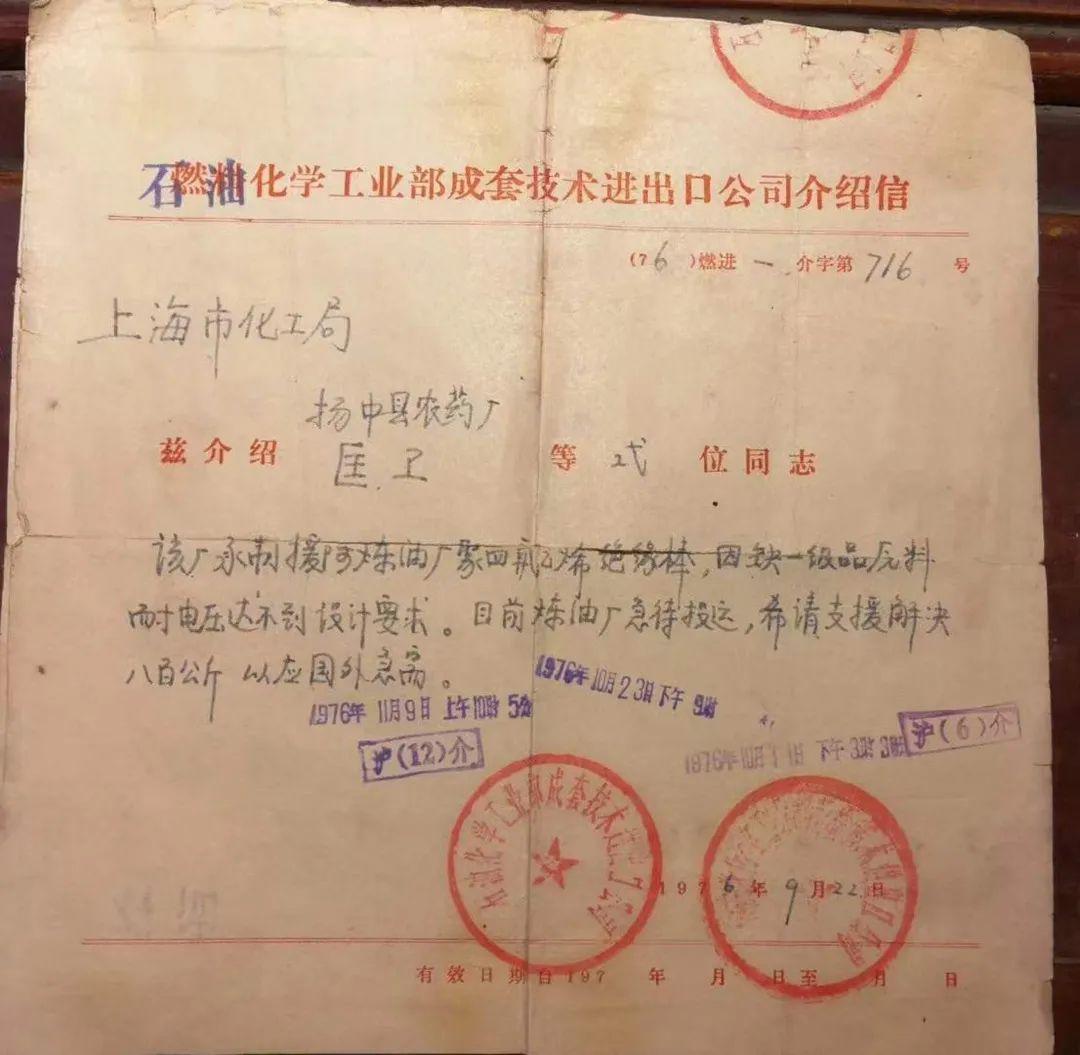 石油化学工业部成套技术进出口公司介绍信
(76)燃进一介字第716号
上海市化工局
扬中县农药厂
兹介绍 匡卫 等 弍 位同志
该厂承制援阿炼油厂聚四氟乙烯绝缘棒，因缺一级品原料
而耐电压达不到设计要求。目前炼油厂急待投运，希请支援解决
八百公斤 以应国外急需。
1976年10月23日下午9时
1976年 11月9日 上午10时5分
沪(6)介
沪(12)介
石油化学工业部成套技术进出口公司
1976年9月22日
有效日期自197 年 月 日至 月 日